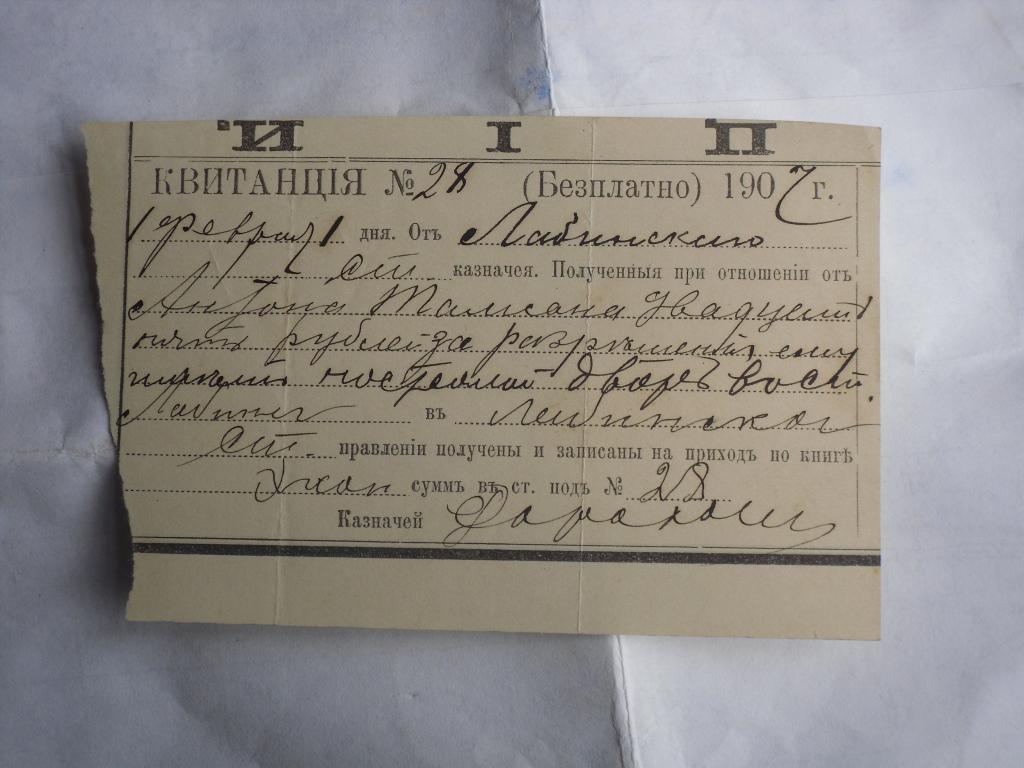 И I П
КВИТАНЦІЯ № 28 (Безплатно) 1907 г.
1 Феврал 1 дня. Отъ Лабинскаго
ст. казначея. Полученныя при отношеніи отъ
Антона двадцать
пять рублей за разрѣшеніи ему
постоялой дворъ въ ст.
Лабинс въ Лабинской
ст. правленіи получены и записаны на приходъ по книгѣ
Экон суммъ въ ст. подъ № 28
Казначей